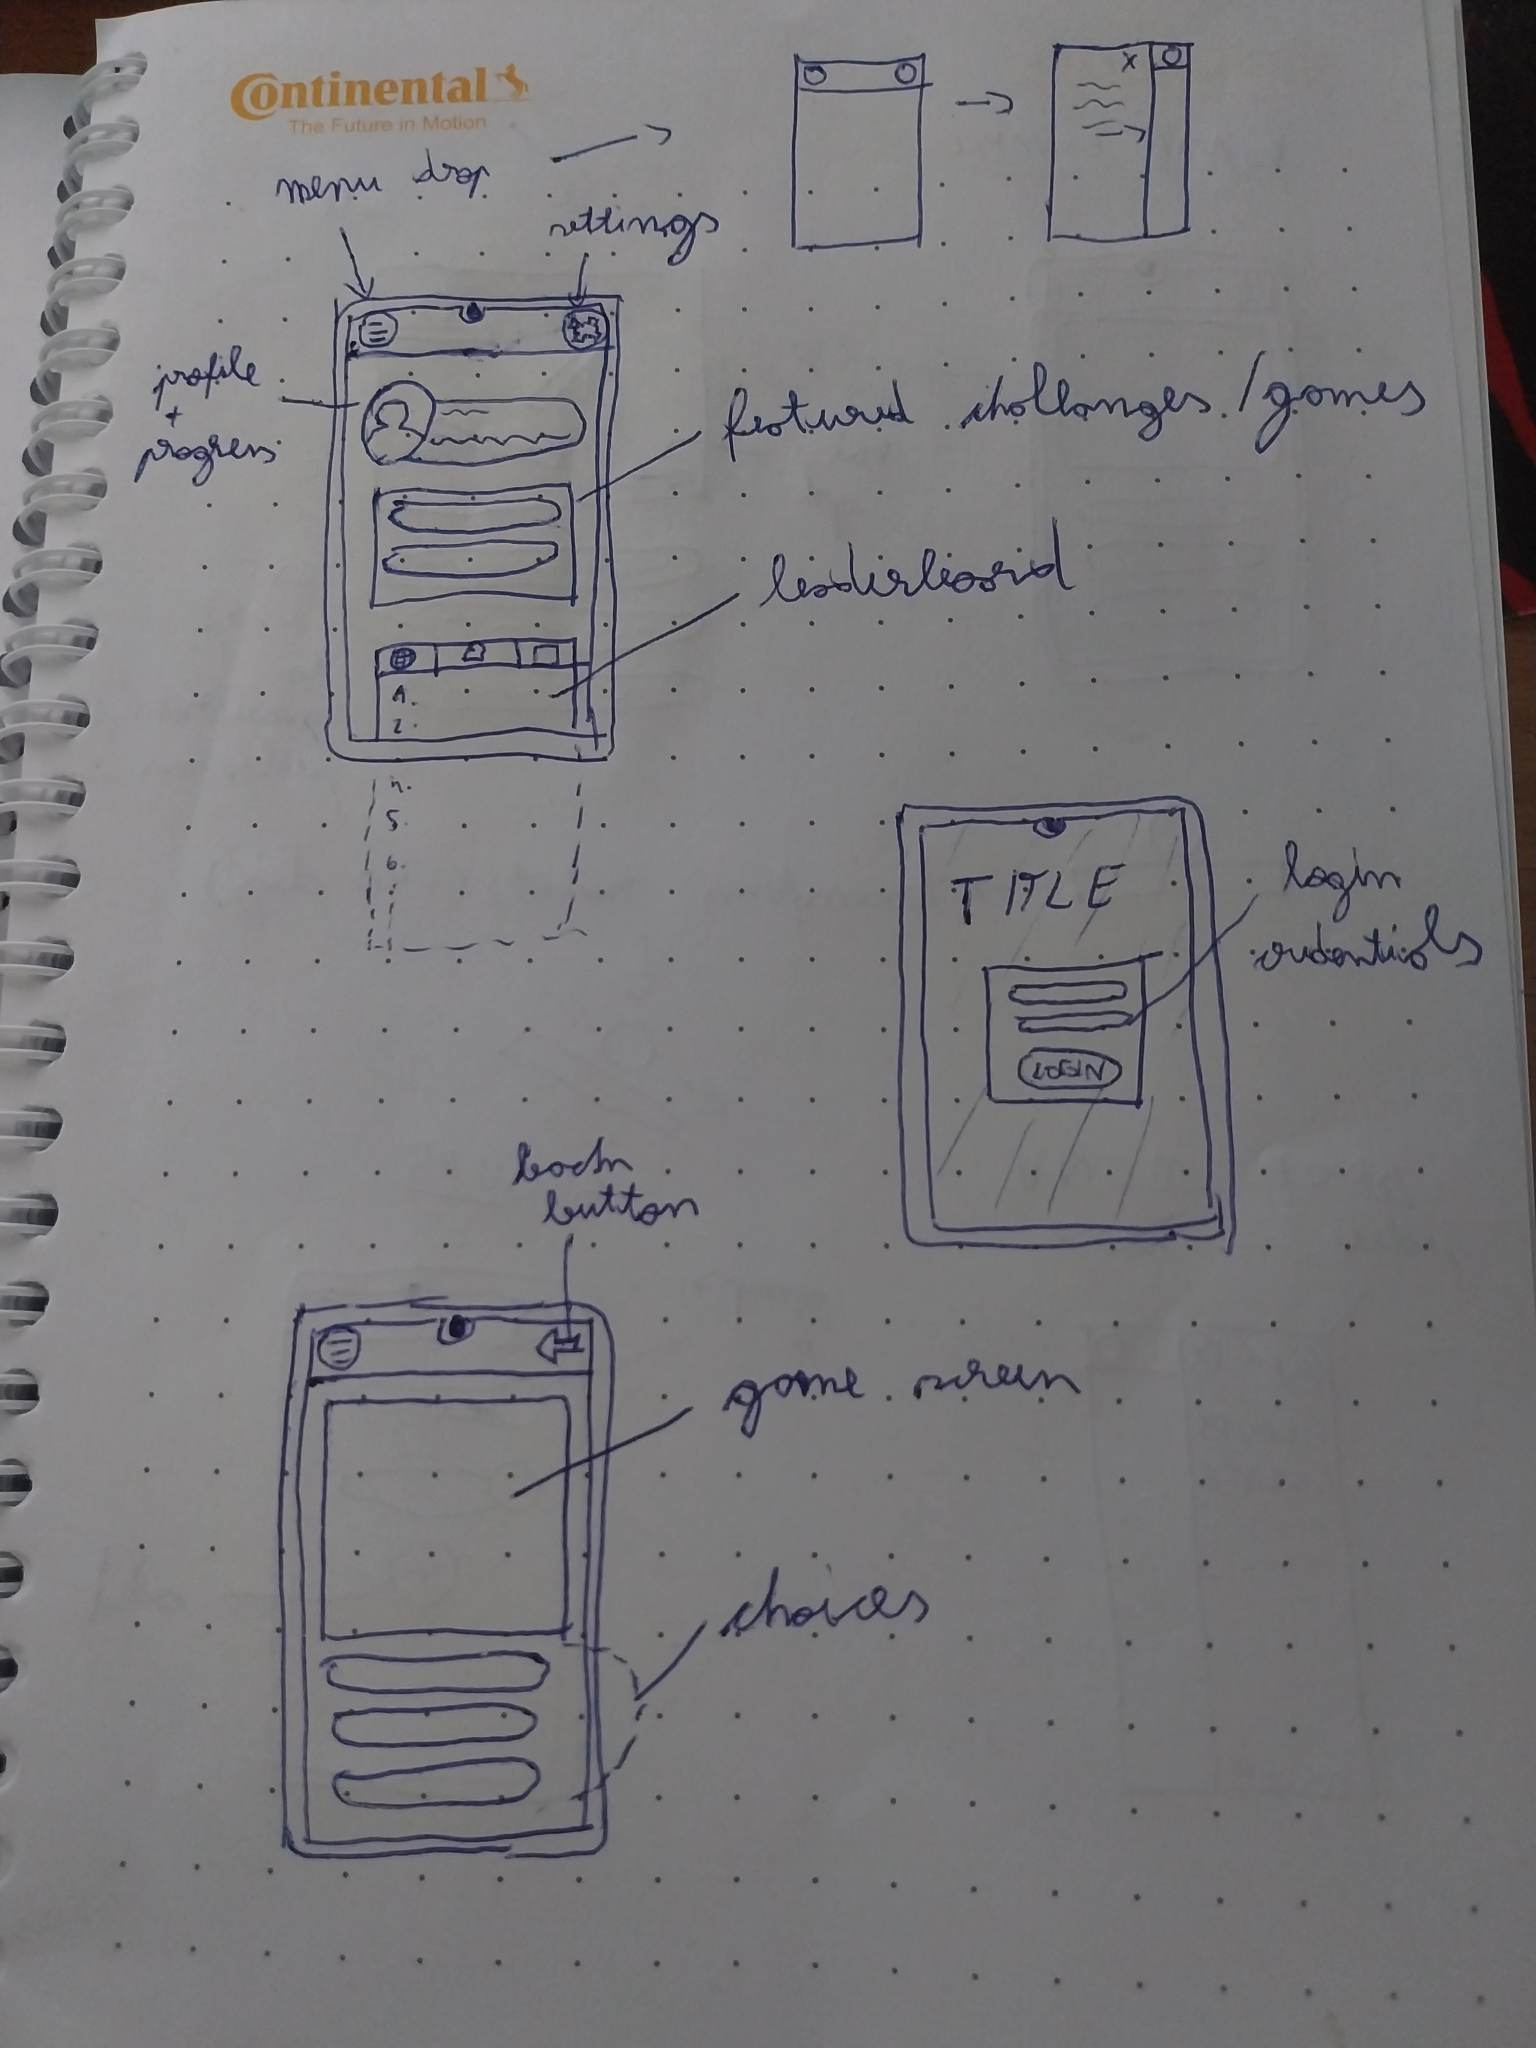 Continental
The Future in Motion
menu drop
settings
X
profile
+
progress
featured challanges/games
leaderboard
1.
2.
4.
5.
6.
TITLE
login
credentials
LOGIN
back
button
game screen
choices